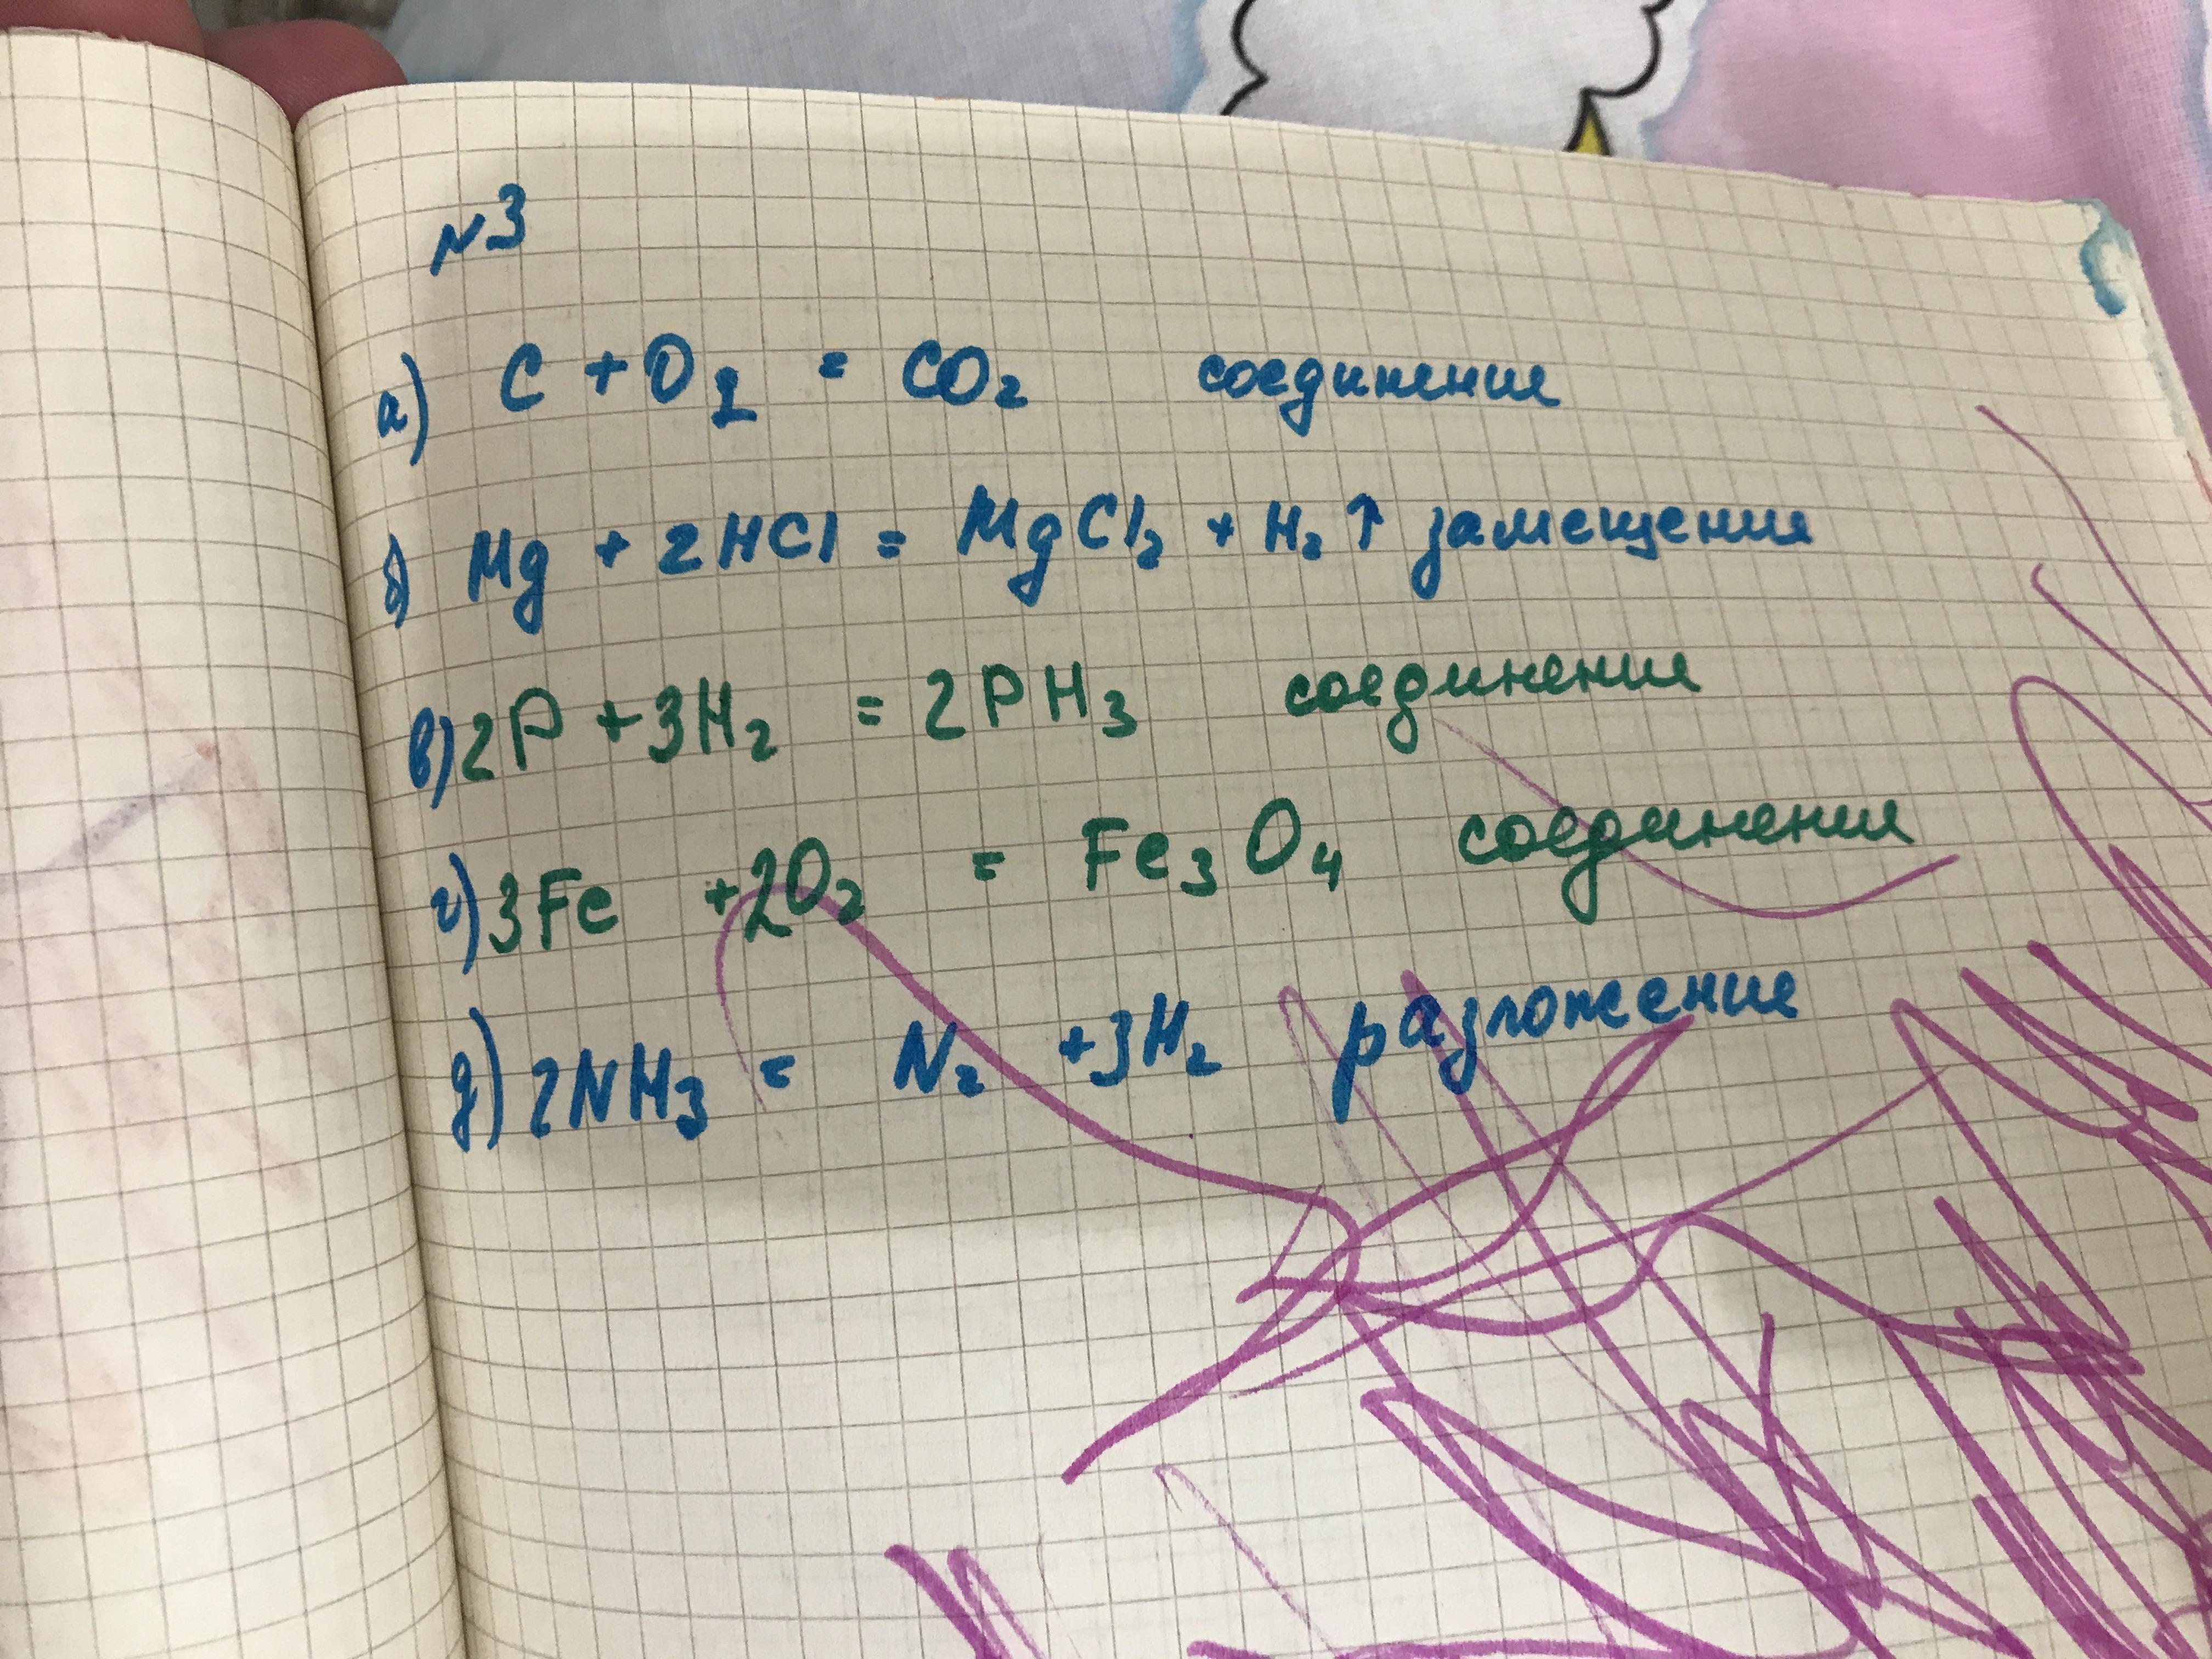 N3
а) C + O₂ = CO₂ соединение
б) Mg + 2HCl = MgCl₂ + H₂↑ замещение
в) 2P + 3H₂ = 2PH₃ соединение
г) 3Fe + 2O₂ = Fe₃O₄ соединение
д) 2NH₃ = N₂ + 3H₂ разложение